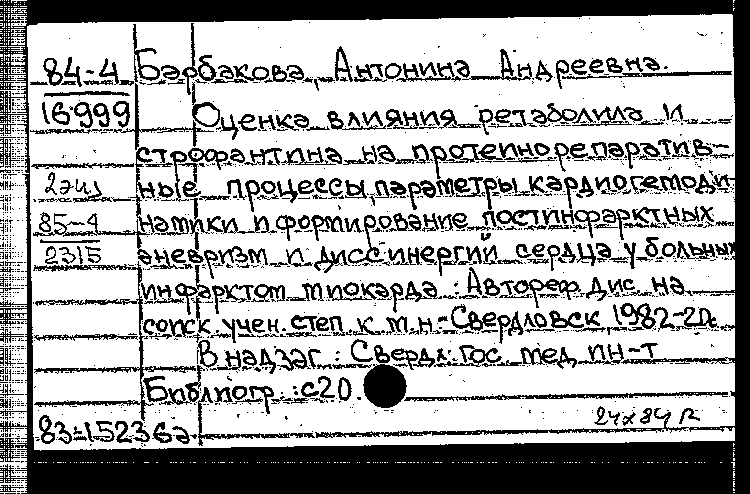 84-4 Барбакова, Антонина Андреевна.
16999 Оценка влияния ретаболила и
строфантина на протеинорепаратив-
2 экз ные процессы, параметры кардиогемоди-
85-4 намики и формирование постинфарктных
2315 аневризм и диссинергий сердца у больных
инфарктом миокарда : Автореф. дис. на
соиск. учен. степ. к. м. н. - Свердловск, 1982-22.
В надзаг : Свердл. гос. мед. ин-т
Библиогр. : с 20.
83-15236а